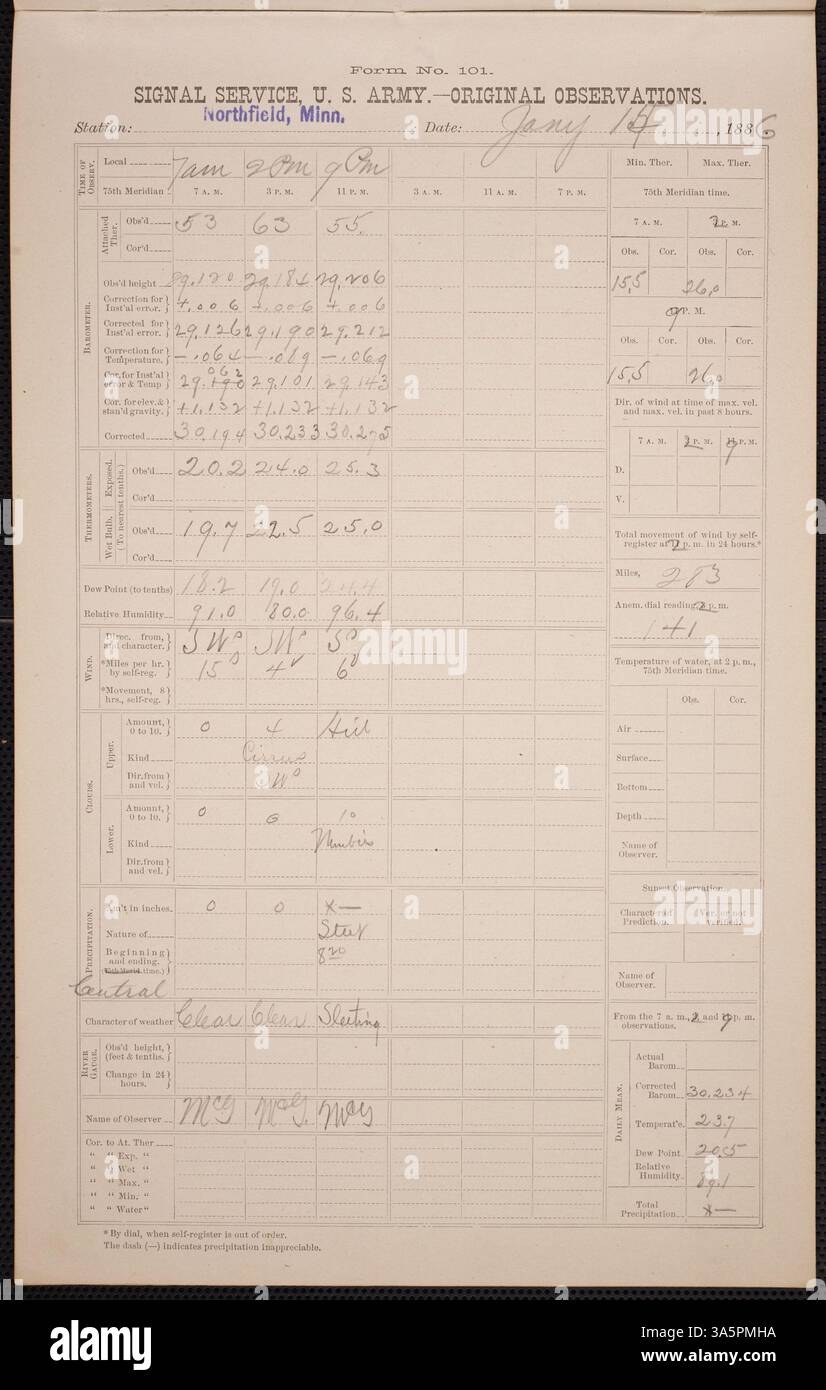 Form No. 101.
SIGNAL SERVICE, U. S. ARMY.—ORIGINAL OBSERVATIONS.
Station: Northfield, Minn. Date: Jany 14, 1886.
TIME OF OBSERV.
Local 7am 2Pm 9Pm
75th Meridian 7 A. M. 3 P. M. 11 P. M. 3 A. M. 11 A. M. 7 P. M.
BAROMETER.
Attached Ther.
Obs'd 53 63 55.
Cor'd
Obs'd height 29.120 29.184 29.206
Correction for Inst'al error. +.006 +.006 +.006
Corrected for Inst'al error. 29.126 29.190 29.212
Correction for Temperature. -.064 -.089 -.069
Cor. for Inst'al error & Temp 29.062 29.101 29.143
Cor. for elev. & stan'd gravity. +1.132 +1.132 +1.132
Corrected 30.194 30.233 30.275
THERMOMETERS.
Exposed. Wet Bulb. (To nearest tenths.)
Obs'd 20.2 24.0 25.3
Cor'd
Obs'd 19.7 22.5 25.0
Cor'd
Dew Point (to tenths) 18.2 19.0 24.4
Relative Humidity 91.0 80.0 96.4
WIND.
Direc. from, and character. SW SW S
*Miles per hr. by self-reg. 15 4 6
*Movement, 8 hrs., self-reg.
CLOUDS.
Upper.
Amount, 0 to 10. 0 4
Kind Cirrus
Dir. from and vel. W
Lower.
Amount, 0 to 10. 0 0 10
Kind Nimbus
Dir. from and vel.
PRECIPITATION.
Am't in inches. 0 0 *—
Nature of Sleet
Beginning and ending. 8 20
(75th Merid. time.)
Central
Character of weather Clear Clear Sleeting
RIVER GAUGE.
Obs'd height, (feet & tenths.)
Change in 24 hours.
Name of Observer McG McG. McG
Cor. to At. Ther
" " Exp. "
" " Wet "
" " Max. "
" " Min. "
" " Water "
* By dial, when self-register is out of order.
The dash (—) indicates precipitation inappreciable.
Min. Ther. Max. Ther.
75th Meridian time.
7 A. M. 2 P. M.
Obs. Cor. Obs. Cor.
15.5 26.0
9 P. M.
Obs. Cor. Obs. Cor.
15.5 26.0
Dir. of wind at time of max. vel. and max. vel. in past 8 hours.
7 A. M. 2 P. M. 9 P. M.
D.
V.
Total movement of wind by self-register at 2 p. m. in 24 hours.*
Miles, 283
Anem. dial reading, 2 p. m.
141
Temperature of water, at 2 p. m., 75th Meridian time.
Obs. Cor.
Air
Surface
Bottom
Depth
Name of Observer.
Sunset Observation.
Character of Prediction. Ver. or not verified.
Name of Observer.
From the 7 a. m., 2 and 9 p. m. observations.
DAILY MEAN.
Actual Barom.
Corrected Barom. 30.234
Temperat'e. 23.7
Dew Point 20.5
Relative Humidity. 89.1
Total Precipitation. *—
alamy
Image ID: 3A5PMHA
www.alamy.com